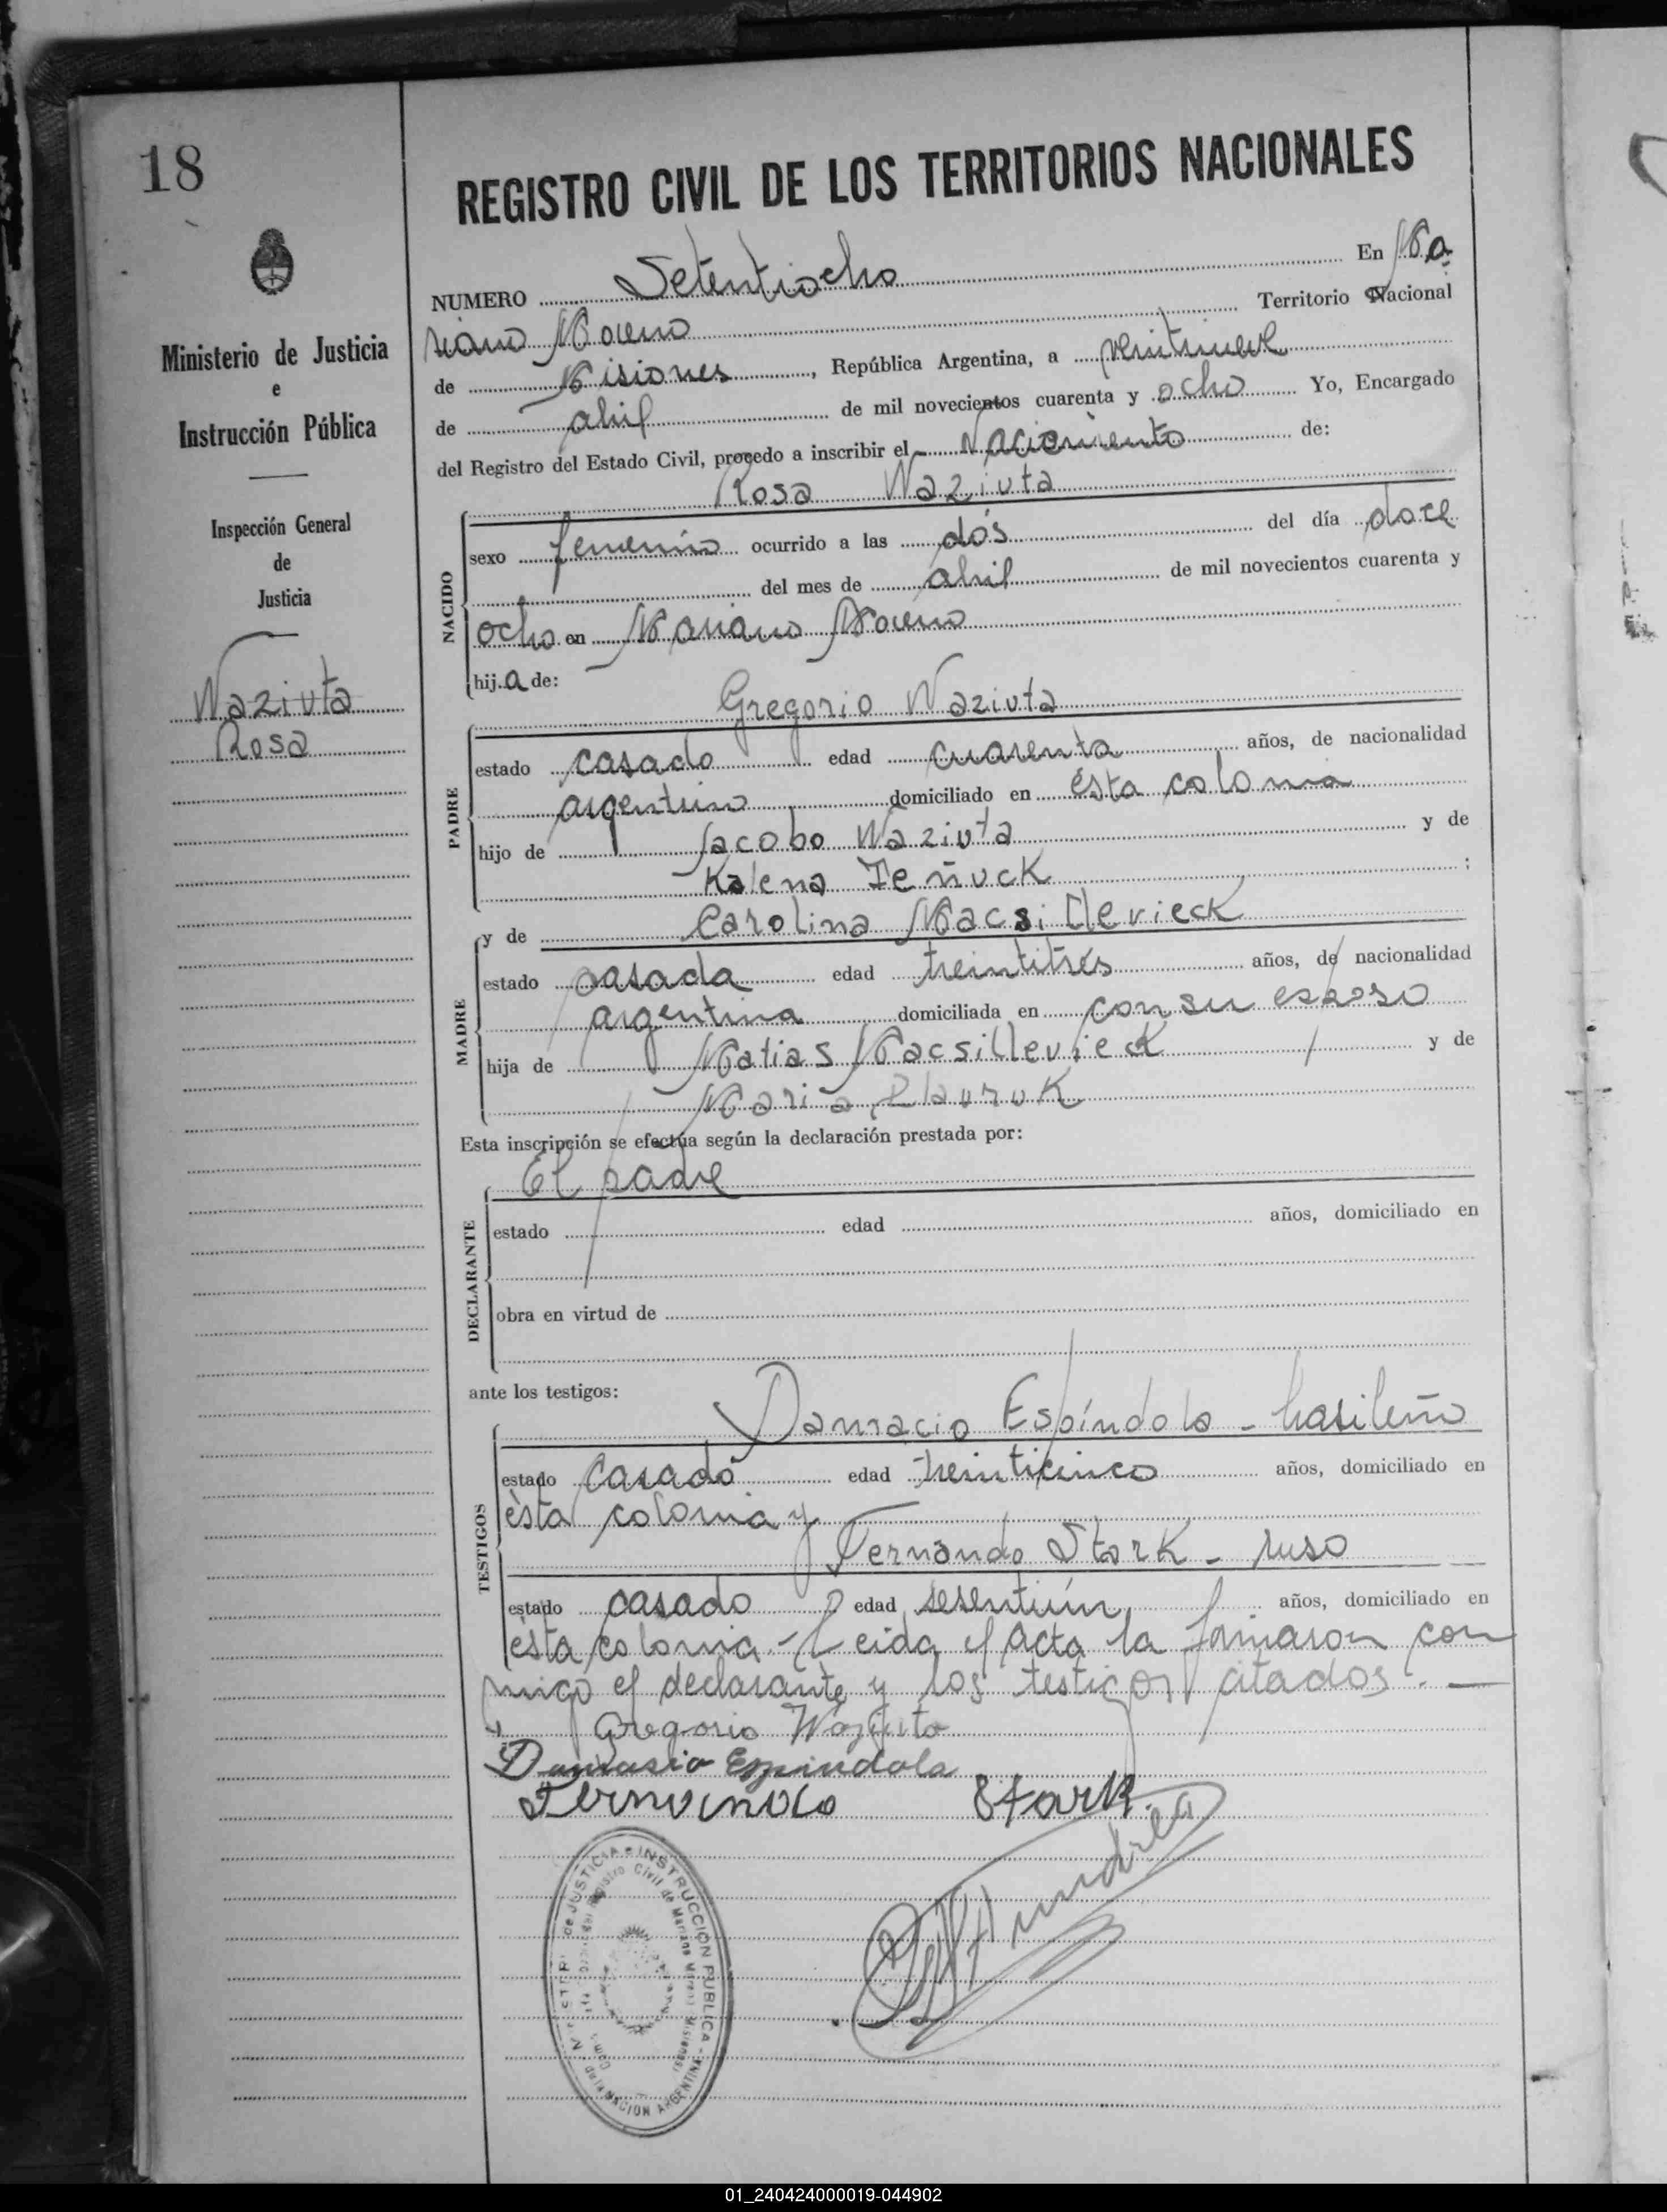 18
REGISTRO CIVIL DE LOS TERRITORIOS NACIONALES
NUMERO Setentiocho En Ma
riano Moreno Territorio Nacional
de Misiones, República Argentina, a veintinueve
de abril de mil novecientos cuarenta y ocho Yo, Encargado
del Registro del Estado Civil, procedo a inscribir el Nacimiento de:
Ministerio de Justicia
e
Instrucción Pública
Inspección General
de
Justicia
Waziuta
Rosa
Rosa Waziuta
NACIDO
sexo femenino ocurrido a las dós del día doce
del mes de abril de mil novecientos cuarenta y
ocho en Mariano Moreno
hija de:
Gregorio Waziuta
PADRE
estado casado edad cuarenta años, de nacionalidad
argentino domiciliado en ésta colonia
hijo de Jacobo Waziuta y de
Kalena Teñuck :
MADRE
y de Carolina Macsillevieck
estado casada edad treintitrés años, de nacionalidad
argentina domiciliada en con su esposo
hija de Matias Macsillevieck y de
Maria
Esta inscripción se efectúa según la declaración prestada por:
El padre
DECLARANTE
estado edad años, domiciliado en
obra en virtud de
ante los testigos:
Damacio Espíndola - brasileño
TESTIGOS
estado casado edad treinticinco años, domiciliado en
ésta colonia y
Fernando Stark - ruso
estado casado edad sesentiún años, domiciliado en
ésta colonia.- Leida el acta la firmaron con
migo el declarante y los testigos citados.-
Gregorio Waziuta
Damasio Espindola
Fernando Stark
MINISTERIO de JUSTICIA e INSTRUCCION PUBLICA - de la NACION ARGENTINA
Registro Civil de Mariano Moreno (Misiones)
01_240424000019-044902